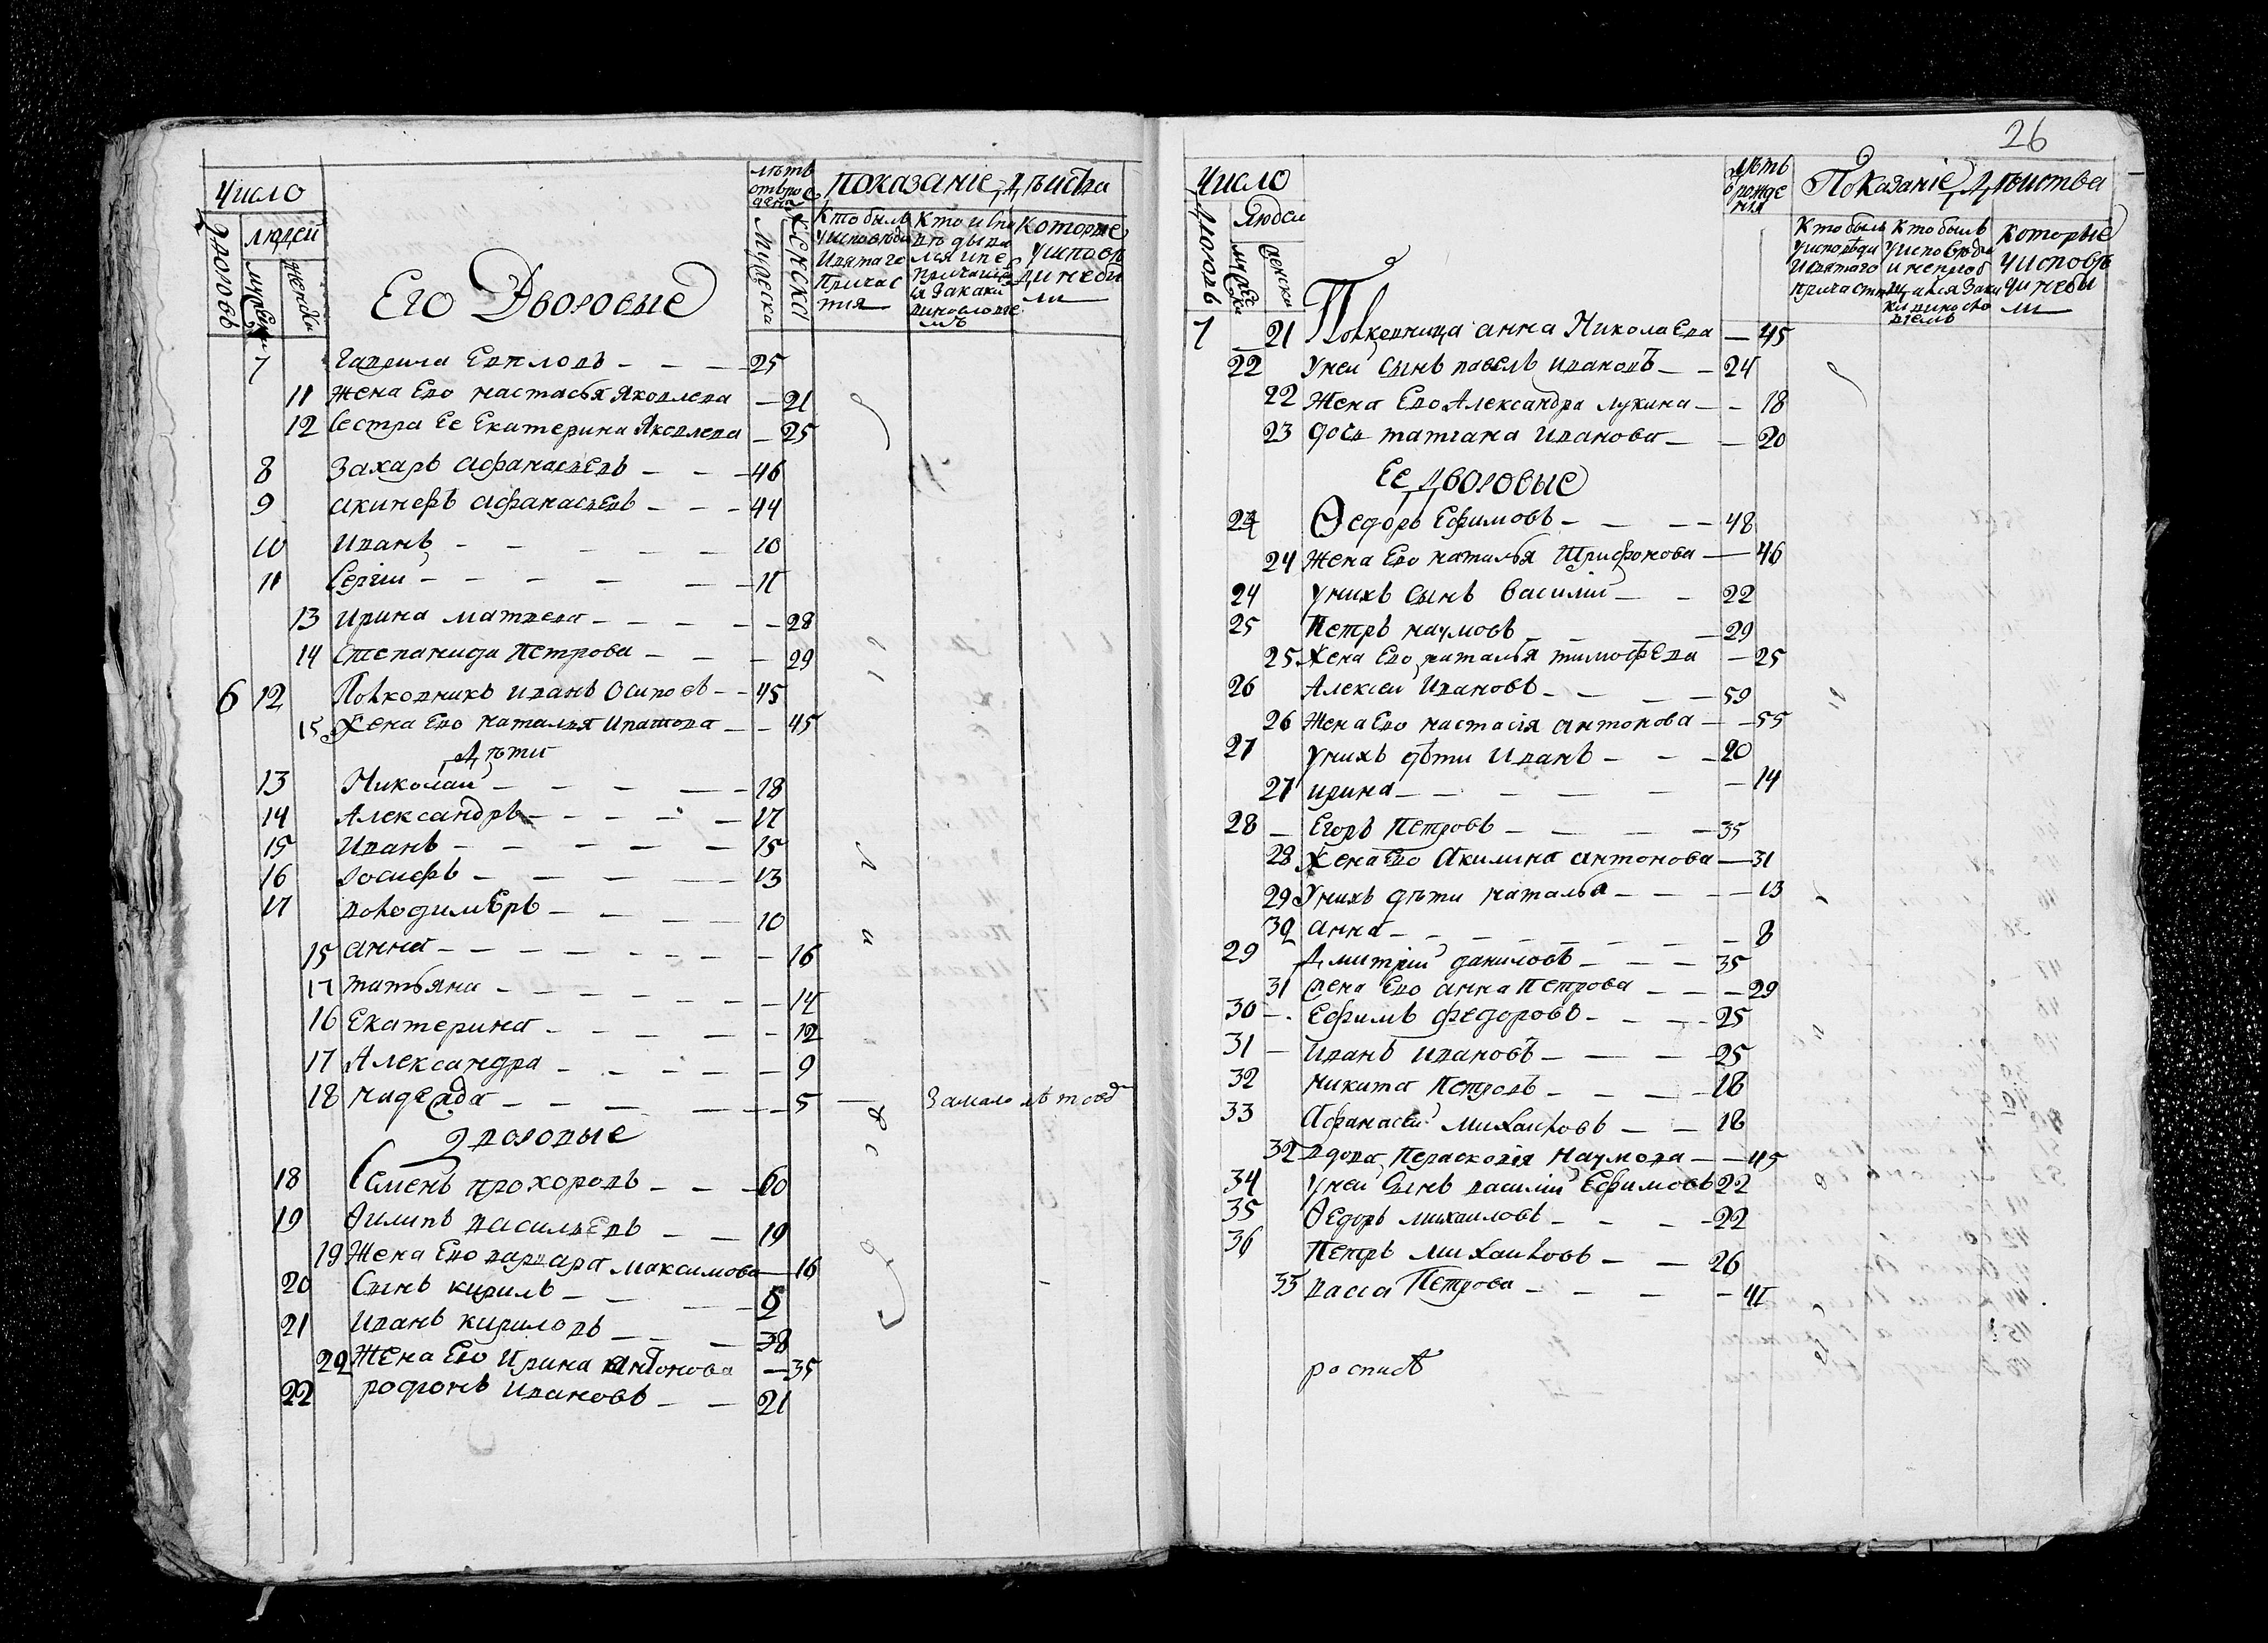 Число
людей
дворовъ
мужеска
женска
Его Дворовые
лѣтъ
от рож
дения
мужеска
женска
показаніе дѣиства
Кто былъ
у исповѣди
и святаго
причас
тия
Которые
у исповѣ
ди небы
ли
7 Гаврила Евпловъ 25
11 Жена Ево настасья Яковлева 21
12 Сестра Ее Екатерина Яковлева 25
8 Захаръ афанасьевъ 46
9 акинфъ афанасьевъ 44
10 Иванъ 10
11 Сергіи 11
13 Ирина матвеева 28
14 Степанида Петрова 29
6 12 Полковникъ иванъ Осиповъ 45
15 Жена Ево наталья Ипатова 45
Дѣти
13 Николаи 18
14 Александръ 17
15 Иванъ 15
16 Иосифъ 13
17 володимеръ 10
15 анна 16
17 татьяна 14
16 Екатерина 12
17 Александра 9
18 надежда 5 За малолѣтсвомъ
Дворовые
18 Семенъ прохоровъ 60
19 Филипъ васильевъ 19
19 Жена Ево варвара максимова 16
20 Сынъ кирилъ 5
21 Иванъ кириловъ 38
20 Жена Ево Ирина антонова 35
22 родионъ ивановъ 21
26
Число
Людеи
дворовъ
мужеска
женска
лѣтъ
рожде
ния
Показаніе дѣиства
Кто былъ
у исповѣди
и святаго
причастия
Кто былъ
у исповѣди
и непричащался
которые
у исповѣ
ди небы
ли
7 21 Полковница анна Николаева 45
22 у неи сынъ павелъ ивановъ 24
22 Жена Ево Александра лукина 18
23 дочь татиана иванова 20
Ее дворовые
23 Ѳедоръ Ефимовъ 48
24 Жена Ево наталья Трифонова 46
24 у нихъ сынъ василіи 22
25 Петръ наумовъ 29
25 Жена Ево наталья тимофеева 25
26 Алексеи Ивановъ 59
26 Жена Ево настасія антонова 55
27 у нихъ дѣти Иванъ 20
27 ирина 14
28 Егоръ Петровъ 35
28 Жена Ево Акилина антонова 31
29 у нихъ дѣти наталья 13
30 анна 8
29 Дмитріи даниловъ 35
31 Жена Ево анна Петрова 29
30 Ефимъ федоровъ 25
31 Иванъ ивановъ 25
32 никита Петровъ 18
33 Афанасеи михаиловъ 18
32 вдова Перасковія Наумова 45
34 у неи сынъ василіи Ефимовъ 22
35 Ѳедоръ михаиловъ 22
36 Петръ михаиловъ 26
33 васса Петрова 41
роспись